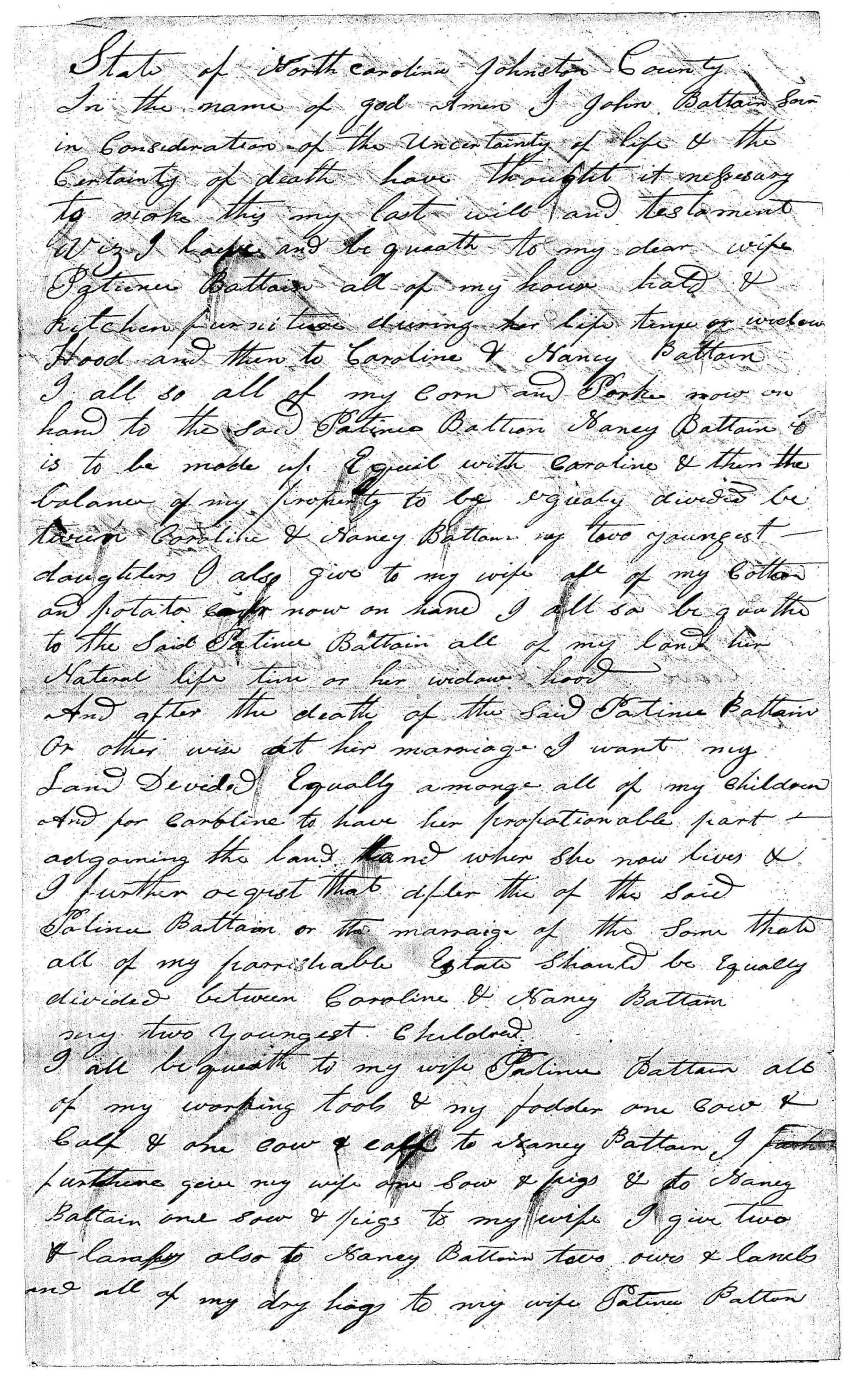 State of North carolina Johnston County
In the name of god Amen I John Battain Sen
in Consideration of the Uncertainty of life & the
Certainty of death have thought it nessesary
to make this my last will and testament
Viz I leave and be queath to my dear wife
Patience Battain all of my house hold &
kitchen furniture during her life time or widow
Hood and then to Caroline & Nancy Battain
I all so all of my corn and Pork now on
hand to the said Patince Battion Nancy Battain
is to be made up Equil with Caroline & then the
balance of my property to be eqealy divided be
tween Caroline & Nancy Battain my two youngest
daughters I also give to my wife all of my Cotton
and potato now on hand I all so be quathe
to the Said Patince Battain all of my land her
Nateral life time or her widow hood
And after the death of the Said Patince Battain
Or other wise at her marriage I want my
Land Devided Equally amonge all of my Children
And for Caroline to have her propationable part
adgoining the land where She now lives &
I further reqist that after the of the Said
Patince Battain or the marraige of the Same that
all of my parrishable Estate Should be Equally
divided between Caroline & Nancy Battain
my two youngest Children
I all bequeath to my wife Patince Battain all
of my working tools & my fodder one Cow &
Calf & one cow & calf to Nancy Battain I
give my wife one Sow & pigs & to Nancy
Battain one Sow & pigs to my wife I give two
& lambs also to Nancy Battain two ows & lambs
and all of my dry hogs to my wife Patince Batton